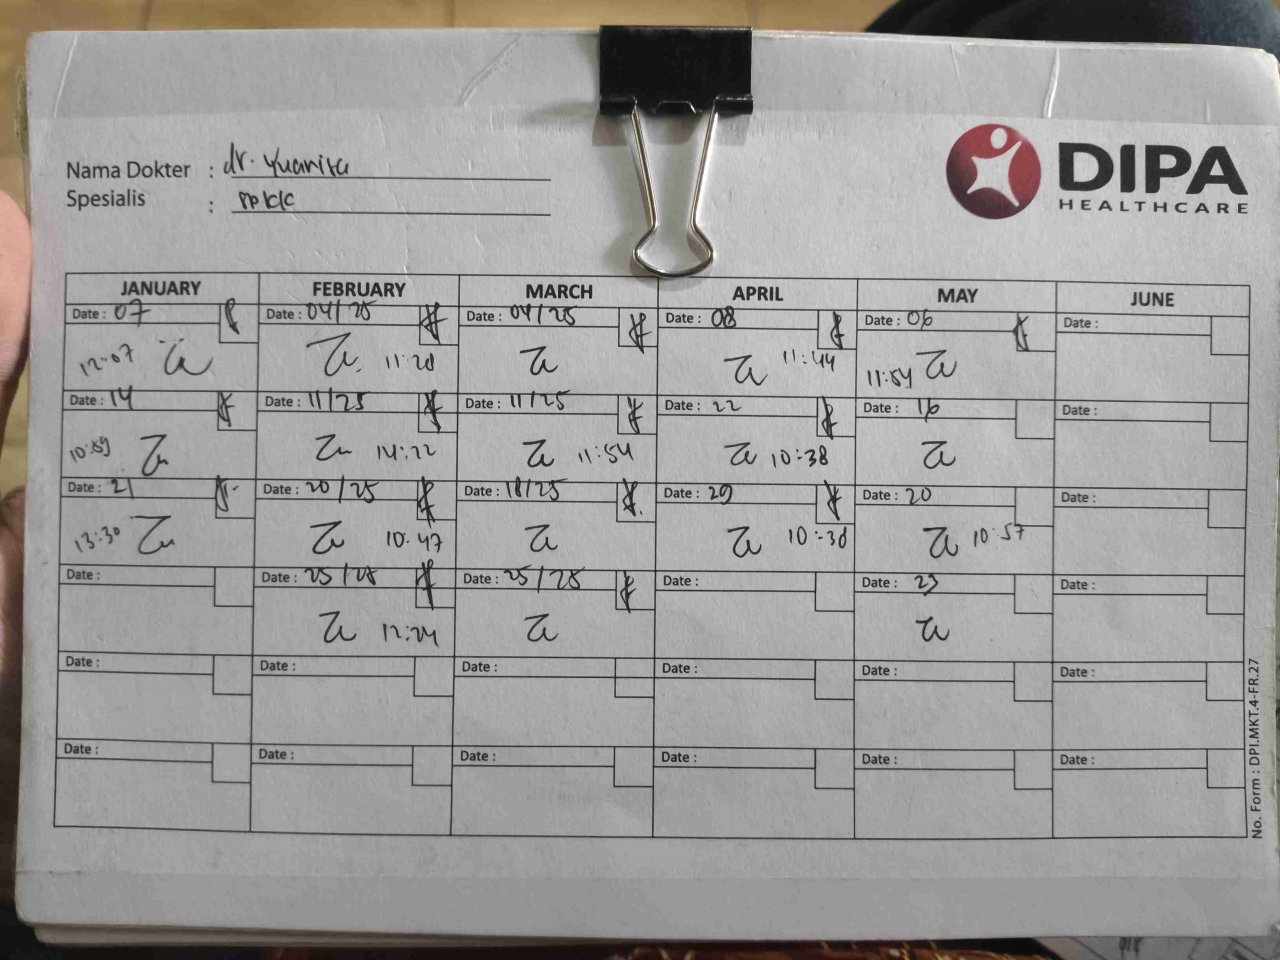 DIPA
HEALTHCARE
Nama Dokter : dr. Yuanita
Spesialis :
JANUARY FEBRUARY MARCH APRIL MAY JUNE
Date : 07 Date : 04/25 Date : 04/25 Date : 08 Date : 06 Date :
12:07 11:20 11:44 11:54
Date : 14 Date : 11/25 Date : 11/25 Date : 22 Date : 16 Date :
10:59 14:22 11:54 10:38
Date : 21 Date : 20/25 Date : 18/25 Date : 29 Date : 20 Date :
13:30 10:47 10:38 10:57
Date : Date : 25/25 Date : 25/25 Date : Date : 23 Date :
12:24
Date : Date : Date : Date : Date : Date :
Date : Date : Date : Date : Date : Date :
No. Form : DPI.MKT.4-FR.27